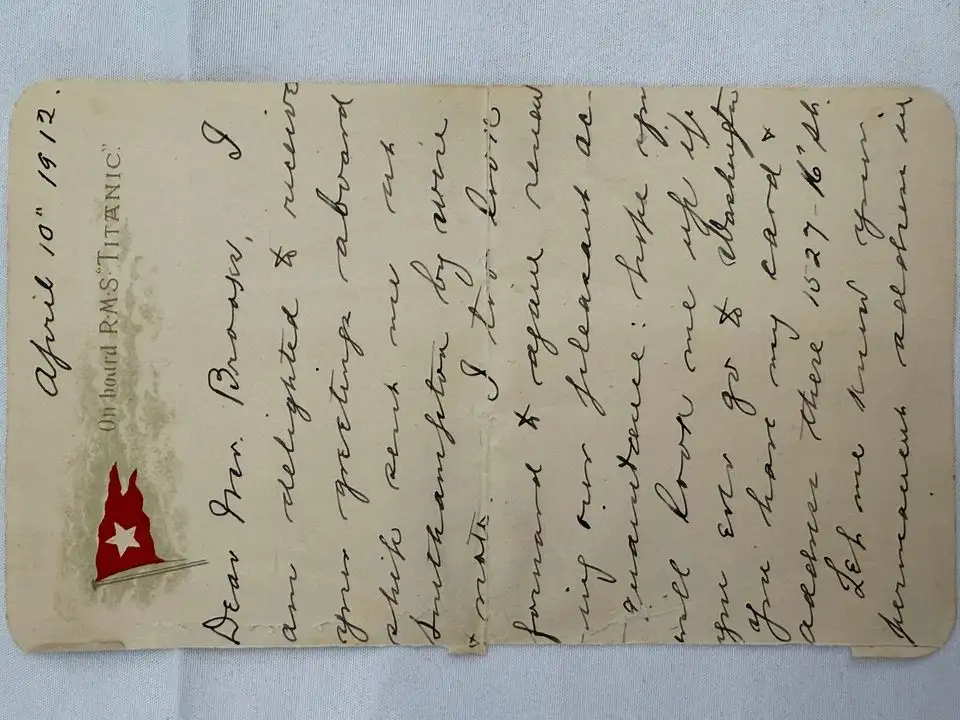 On board R.M.S. "TITANIC."
April 10" 1912.
Dear Mr. Brooks, I
am delighted to receive
your greetings aboard
ship sent me at
Southampton by wire
& note. I too look
forward to again renew
-ing our pleasant ac-
quaintance: hope you
will look me up if
you ever go to Washington
you have my card &
address there 1527-16" St.
Let me know your
permanent address in